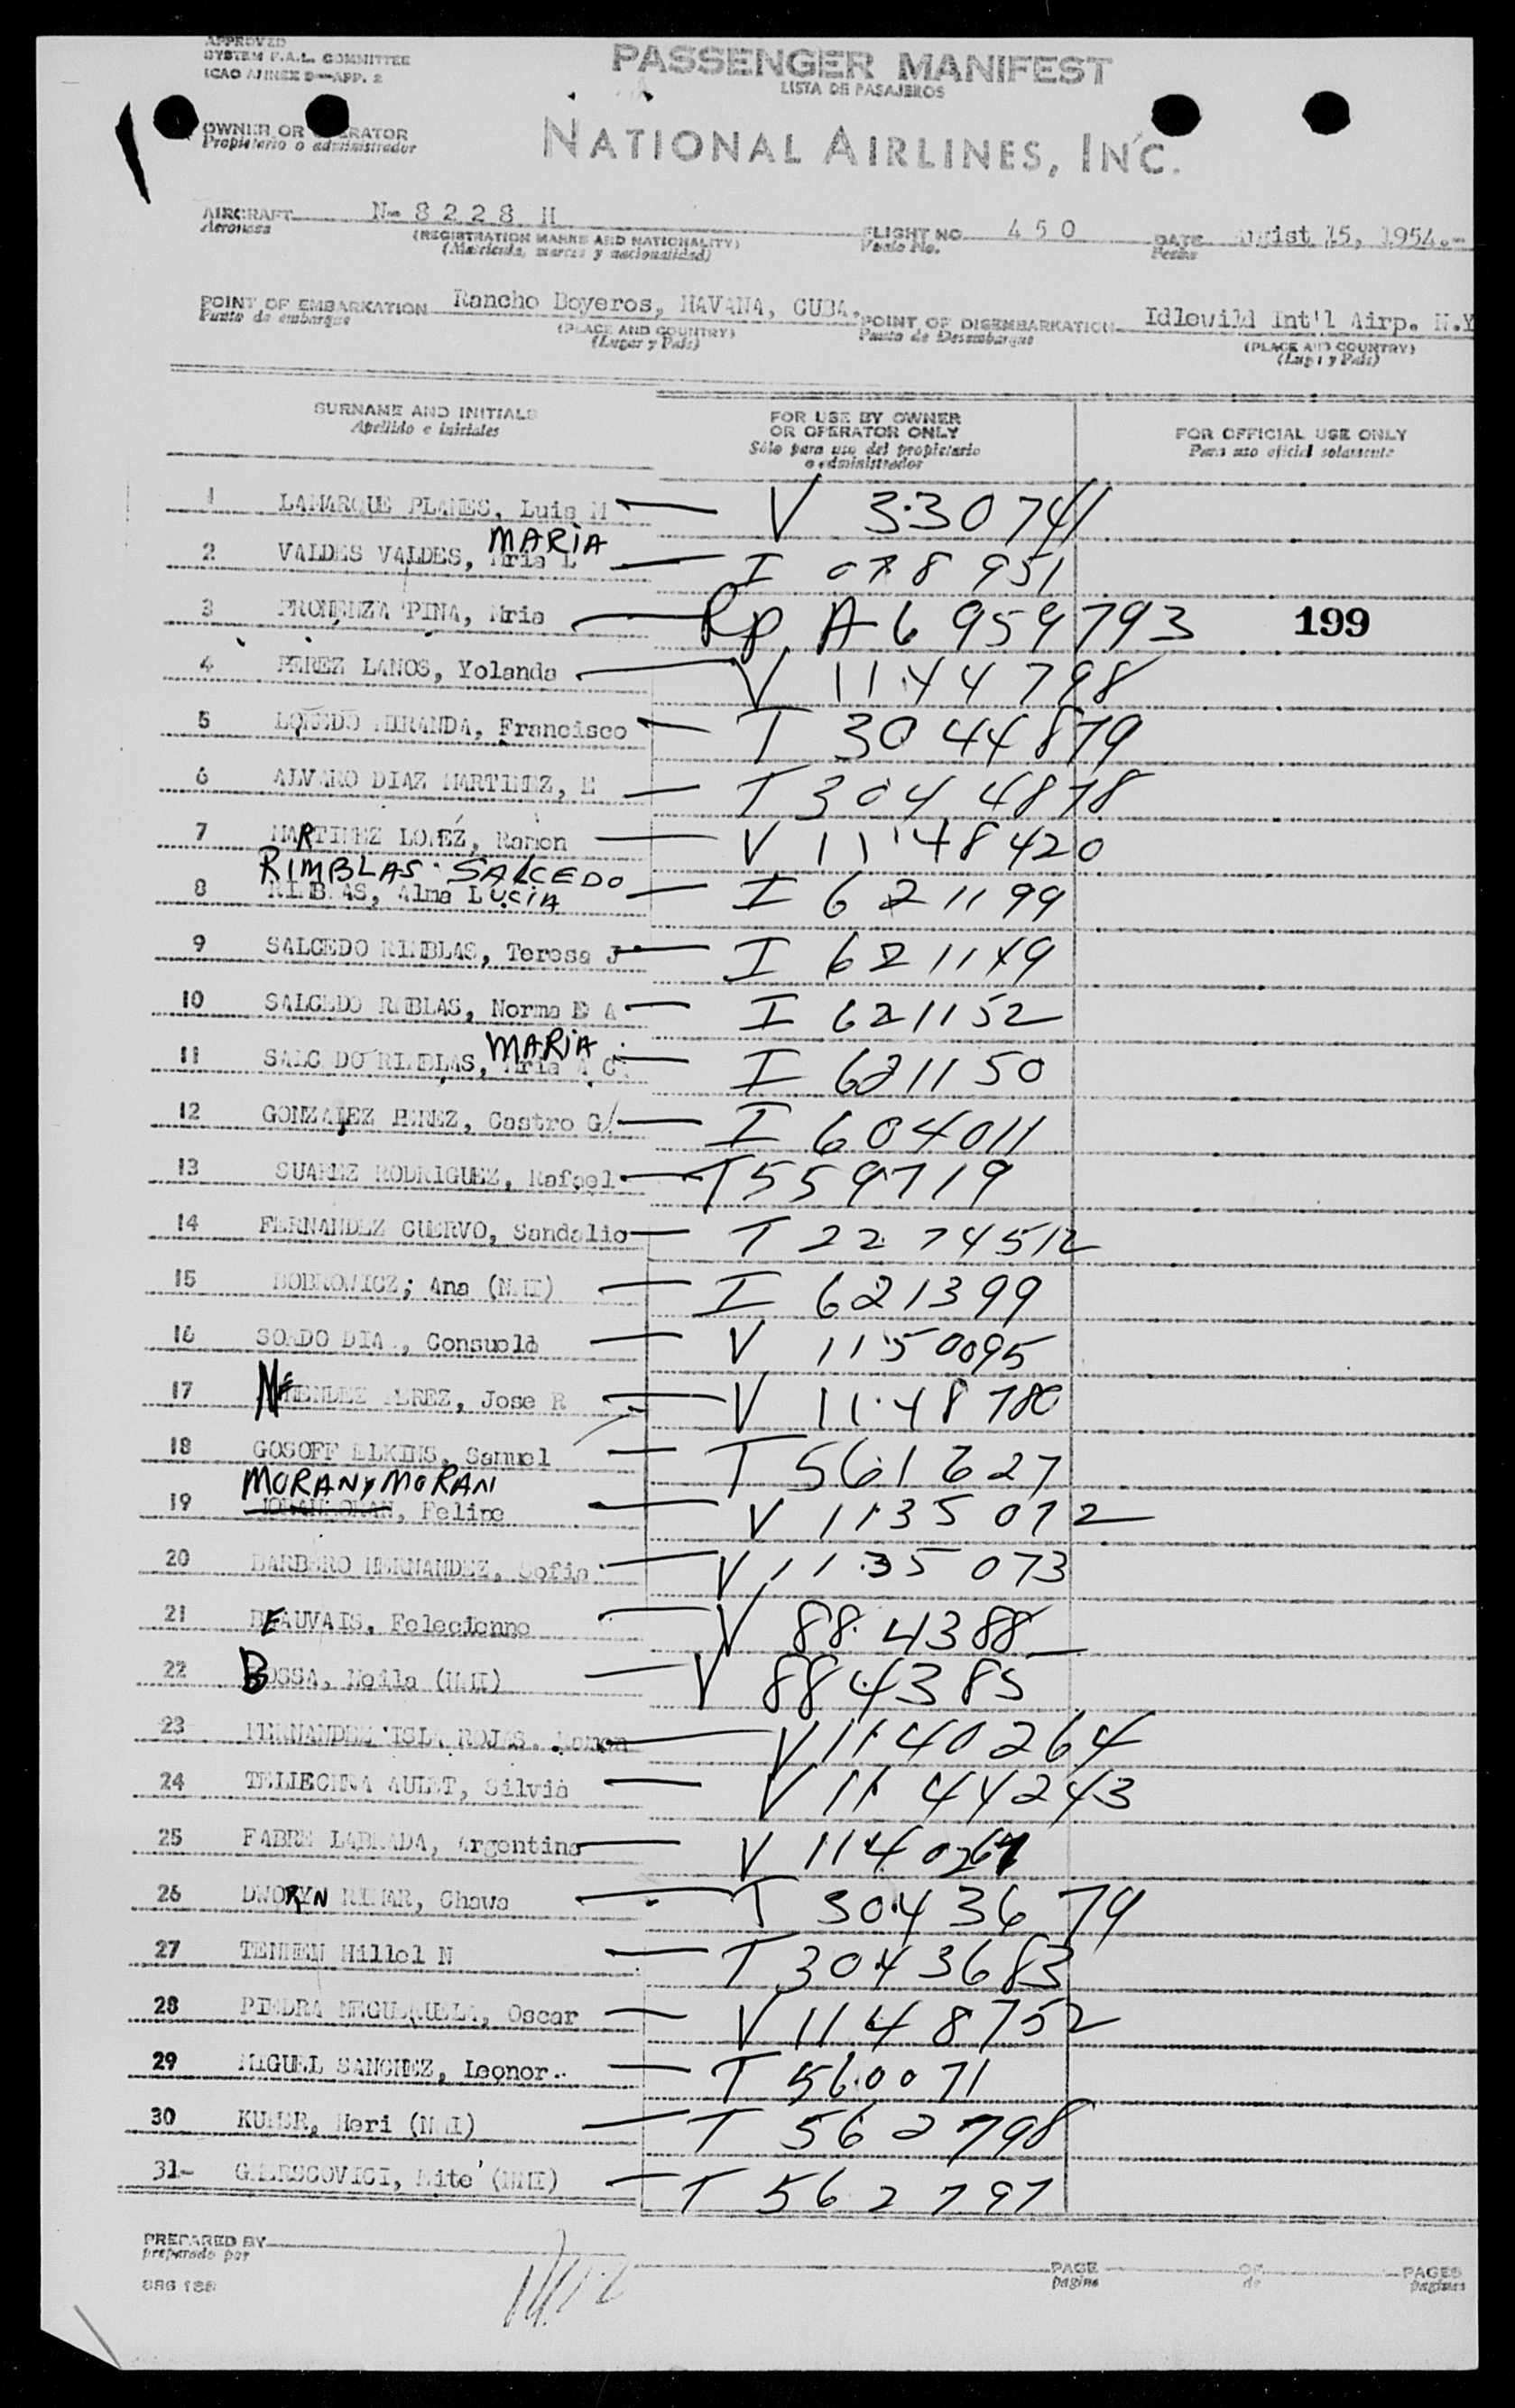 APPROVED
SYSTEM F.A.L. COMMITTEE
ICAO ANNEX 9—APP. 2
PASSENGER MANIFEST
LISTA DE PASAJEROS
OWNER OR OPERATOR
Propietario o administrador
NATIONAL AIRLINES, INC.
AIRCRAFT N- 8 2 2 8 H FLIGHT NO. 4 5 0 DATE 15, 1954.-
Aeronave (REGISTRATION MARKS AND NATIONALITY) Vuelo No. Fecha
(Matricula, marcas y nacionalidad)
POINT OF EMBARKATION Rancho Boyeros, HAVANA, CUBA. POINT OF DISEMBARKATION Idlewild Int'l Airp. N.Y
Punto de embarque (PLACE AND COUNTRY) Punto de Desembarque (PLACE AND COUNTRY)
(Lugar y País) (Lugar y País)
SURNAME AND INITIALS FOR USE BY OWNER FOR OFFICIAL USE ONLY
Apellido e iniciales OR OPERATOR ONLY Para uso oficial solamente
Sólo para uso del propietario
o administrador
1 LAMARQUE PLANES, Luis M — V 330741
MARIA
2 VALDES VALDES, Mria L — I 078 951
3 PINA, Mria — Rp. A6 959 793 199
4 PEREZ LANOS, Yolanda — V 1144798
5 MIRANDA, Francisco — T 3044879
6 ALVARO DIAZ MARTINEZ, E — T 3044878
7 MARTINEZ Ramon — V 1148420
RIMBLAS SALCEDO
8 RIMBLAS, Alma LUCIA — I 621199
9 SALCEDO RIMBLAS, Teresa J — I 621149
10 SALCEDO RMBLAS, Norma E A — I 621152
MARIA
11 SALCEDO RIMBLAS, Mria A C — I 621150
12 GONZALEZ PEREZ, Castro G — I 604011
13 SUAREZ RODRIGUEZ, Rafael — T 559719
14 FERNANDEZ CUERVO, Sandalio — T 2274512
15 BOBROWICZ; Ana (NMI) — I 621399
16 Consuelo — V 1150095
17 MENENDEZ PEREZ, Jose R — V 1148780
18 GOSOFF ELKINS, Samuel — T 561627
MORAN y MORAN
19 Felipe — V 1135072
20 BARBERO HERNANDEZ, Sofia — V 1135073
21 BEAUVAIS, Felecienne — V 884388
22 BOSSA, (NMI) — V 884385
23 FERNANDEZ ISLA ROJAS, — V 1140264
24 TELLECHEA AULET, Silvia — V 1144243
25 FABRE LABRADA, Argentina — V 114026
26 DWORYN Chawa — T 3043679
27 Hillel N — T 3043683
28 PIEDRA Oscar — V 1148752
29 MIGUEL SANCHEZ, Leonor. — T 560071
30 Meri (NMI) — T 562798
31- (NMI) — T 562797
PREPARED BY PAGE OF PAGES
preparado por pagina de paginas